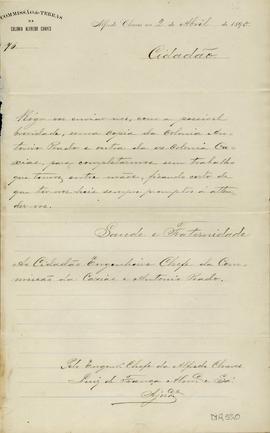 COMMISSÃO DE TERRAS
DA
COLONIA ALFREDO CHAVES
Alfredo Chaves em 2 de Abril de 1890.
Cidadão
Rogo vos enviar-nos, com a possivel
brevidade, uma copia da Colonia An-
tonio Prado e outra da ex Colonia Ca-
xias, para completarmos um trabalho
que temos entre mãos, ficando certo de
que ter-nos-heis sempre promptos á atten-
der-vos.
Saude e Fraternidade
Ao Cidadão Engenheiro Chefe da Com-
missão de Caxias e Antonio Prado.
Pelo Engenh. Chefe de Alfredo Chaves
Luiz de França e Sá
Ajud.e